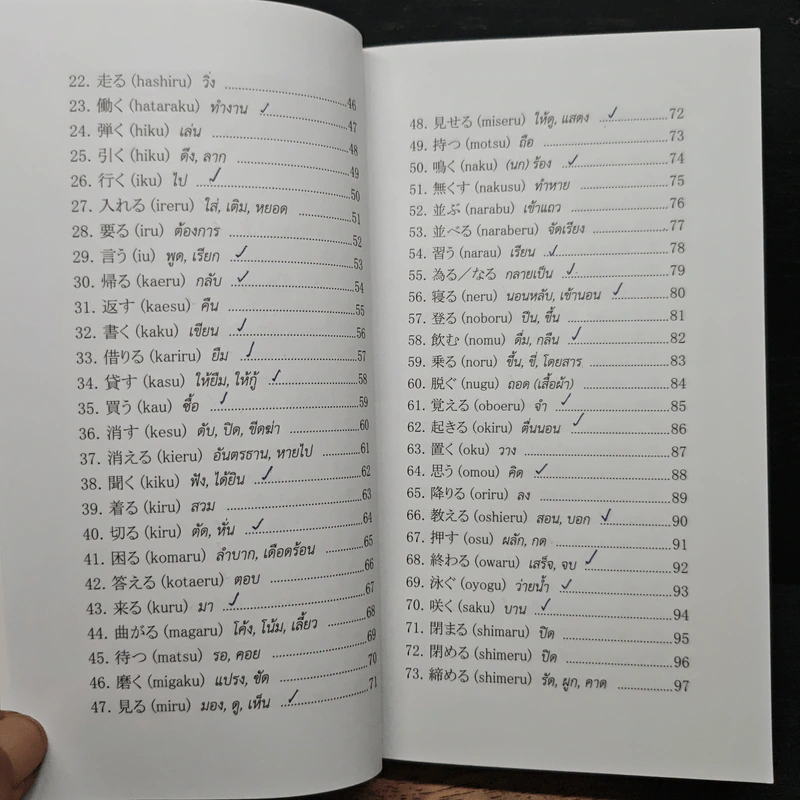 22. 走る (hashiru) วิ่ง ........ 46
23.働く (hataraku) ทำงาน ✓ ........ 47
24. 弾く (hiku) เล่น ........ 48
25. 引く (hiku) ดึง, ลาก ........ 49
26. 行く (iku) ไป ✓ ........ 50
27. 入れる (ireru) ใส่, เติม, หยอด ........ 51
28. 要る (iru) ต้องการ ........ 52
29. 言う (iu) พูด, เรียก ✓ ........ 53
30. 帰る (kaeru) กลับ ✓ ........ 54
31. 返す (kaesu) คืน ........ 55
32. 書く (kaku) เขียน ✓ ........ 56
33. 借りる (kariru) ยืม ✓ ........ 57
34. 貸す (kasu) ให้ยืม, ให้กู้ ✓ ........ 58
35. 買う (kau) ซื้อ ✓ ........ 59
36. 消す (kesu) ดับ, ปิด, ขีดฆ่า ........ 60
37. 消える (kieru) อันตรธาน, หายไป ........ 61
38. 聞く (kiku) ฟัง, ได้ยิน ✓ ........ 62
39. 着る (kiru) สวม ........ 63
40. 切る (kiru) ตัด, หั่น ✓ ........ 64
41. 困る (komaru) ลำบาก, เดือดร้อน ........ 65
42. 答える (kotaeru) ตอบ ........ 66
43. 来る (kuru) มา ✓ ........ 67
44. 曲がる (magaru) โค้ง, โน้ม, เลี้ยว ........ 68
45. 待つ (matsu) รอ, คอย ........ 69
46. 磨く (migaku) แปรง, ขัด ........ 70
47. 見る (miru) มอง, ดู, เห็น ✓ ........ 71
48. 見せる (miseru) ให้ดู, แสดง ✓ ........ 72
49. 持つ (motsu) ถือ ........ 73
50. 鳴く (naku) (นก) ร้อง ✓ ........ 74
51. 無くす (nakusu) ทำหาย ........ 75
52. 並ぶ (narabu) เข้าแถว ........ 76
53. 並べる (naraberu) จัดเรียง ........ 77
54. 習う (narau) เรียน ✓ ........ 78
55. 為る／なる กลายเป็น ✓ ........ 79
56. 寝る (neru) นอนหลับ, เข้านอน ✓ ........ 80
57. 登る (noboru) ปีน, ขึ้น ........ 81
58. 飲む (nomu) ดื่ม, กลืน ✓ ........ 82
59. 乗る (noru) ขึ้น, ขี่, โดยสาร ........ 83
60. 脱ぐ (nugu) ถอด (เสื้อผ้า) ........ 84
61. 覚える (oboeru) จำ ✓ ........ 85
62. 起きる (okiru) ตื่นนอน ✓ ........ 86
63. 置く (oku) วาง ........ 87
64. 思う (omou) คิด ✓ ........ 88
65. 降りる (oriru) ลง ........ 89
66. 教える (oshieru) สอน, บอก ✓ ........ 90
67. 押す (osu) ผลัก, กด ........ 91
68. 終わる (owaru) เสร็จ, จบ ✓ ........ 92
69. 泳ぐ (oyogu) ว่ายน้ำ ✓ ........ 93
70. 咲く (saku) บาน ✓ ........ 94
71. 閉まる (shimaru) ปิด ........ 95
72. 閉める (shimeru) ปิด ........ 96
73. 締める (shimeru) รัด, ผูก, คาด ........ 97